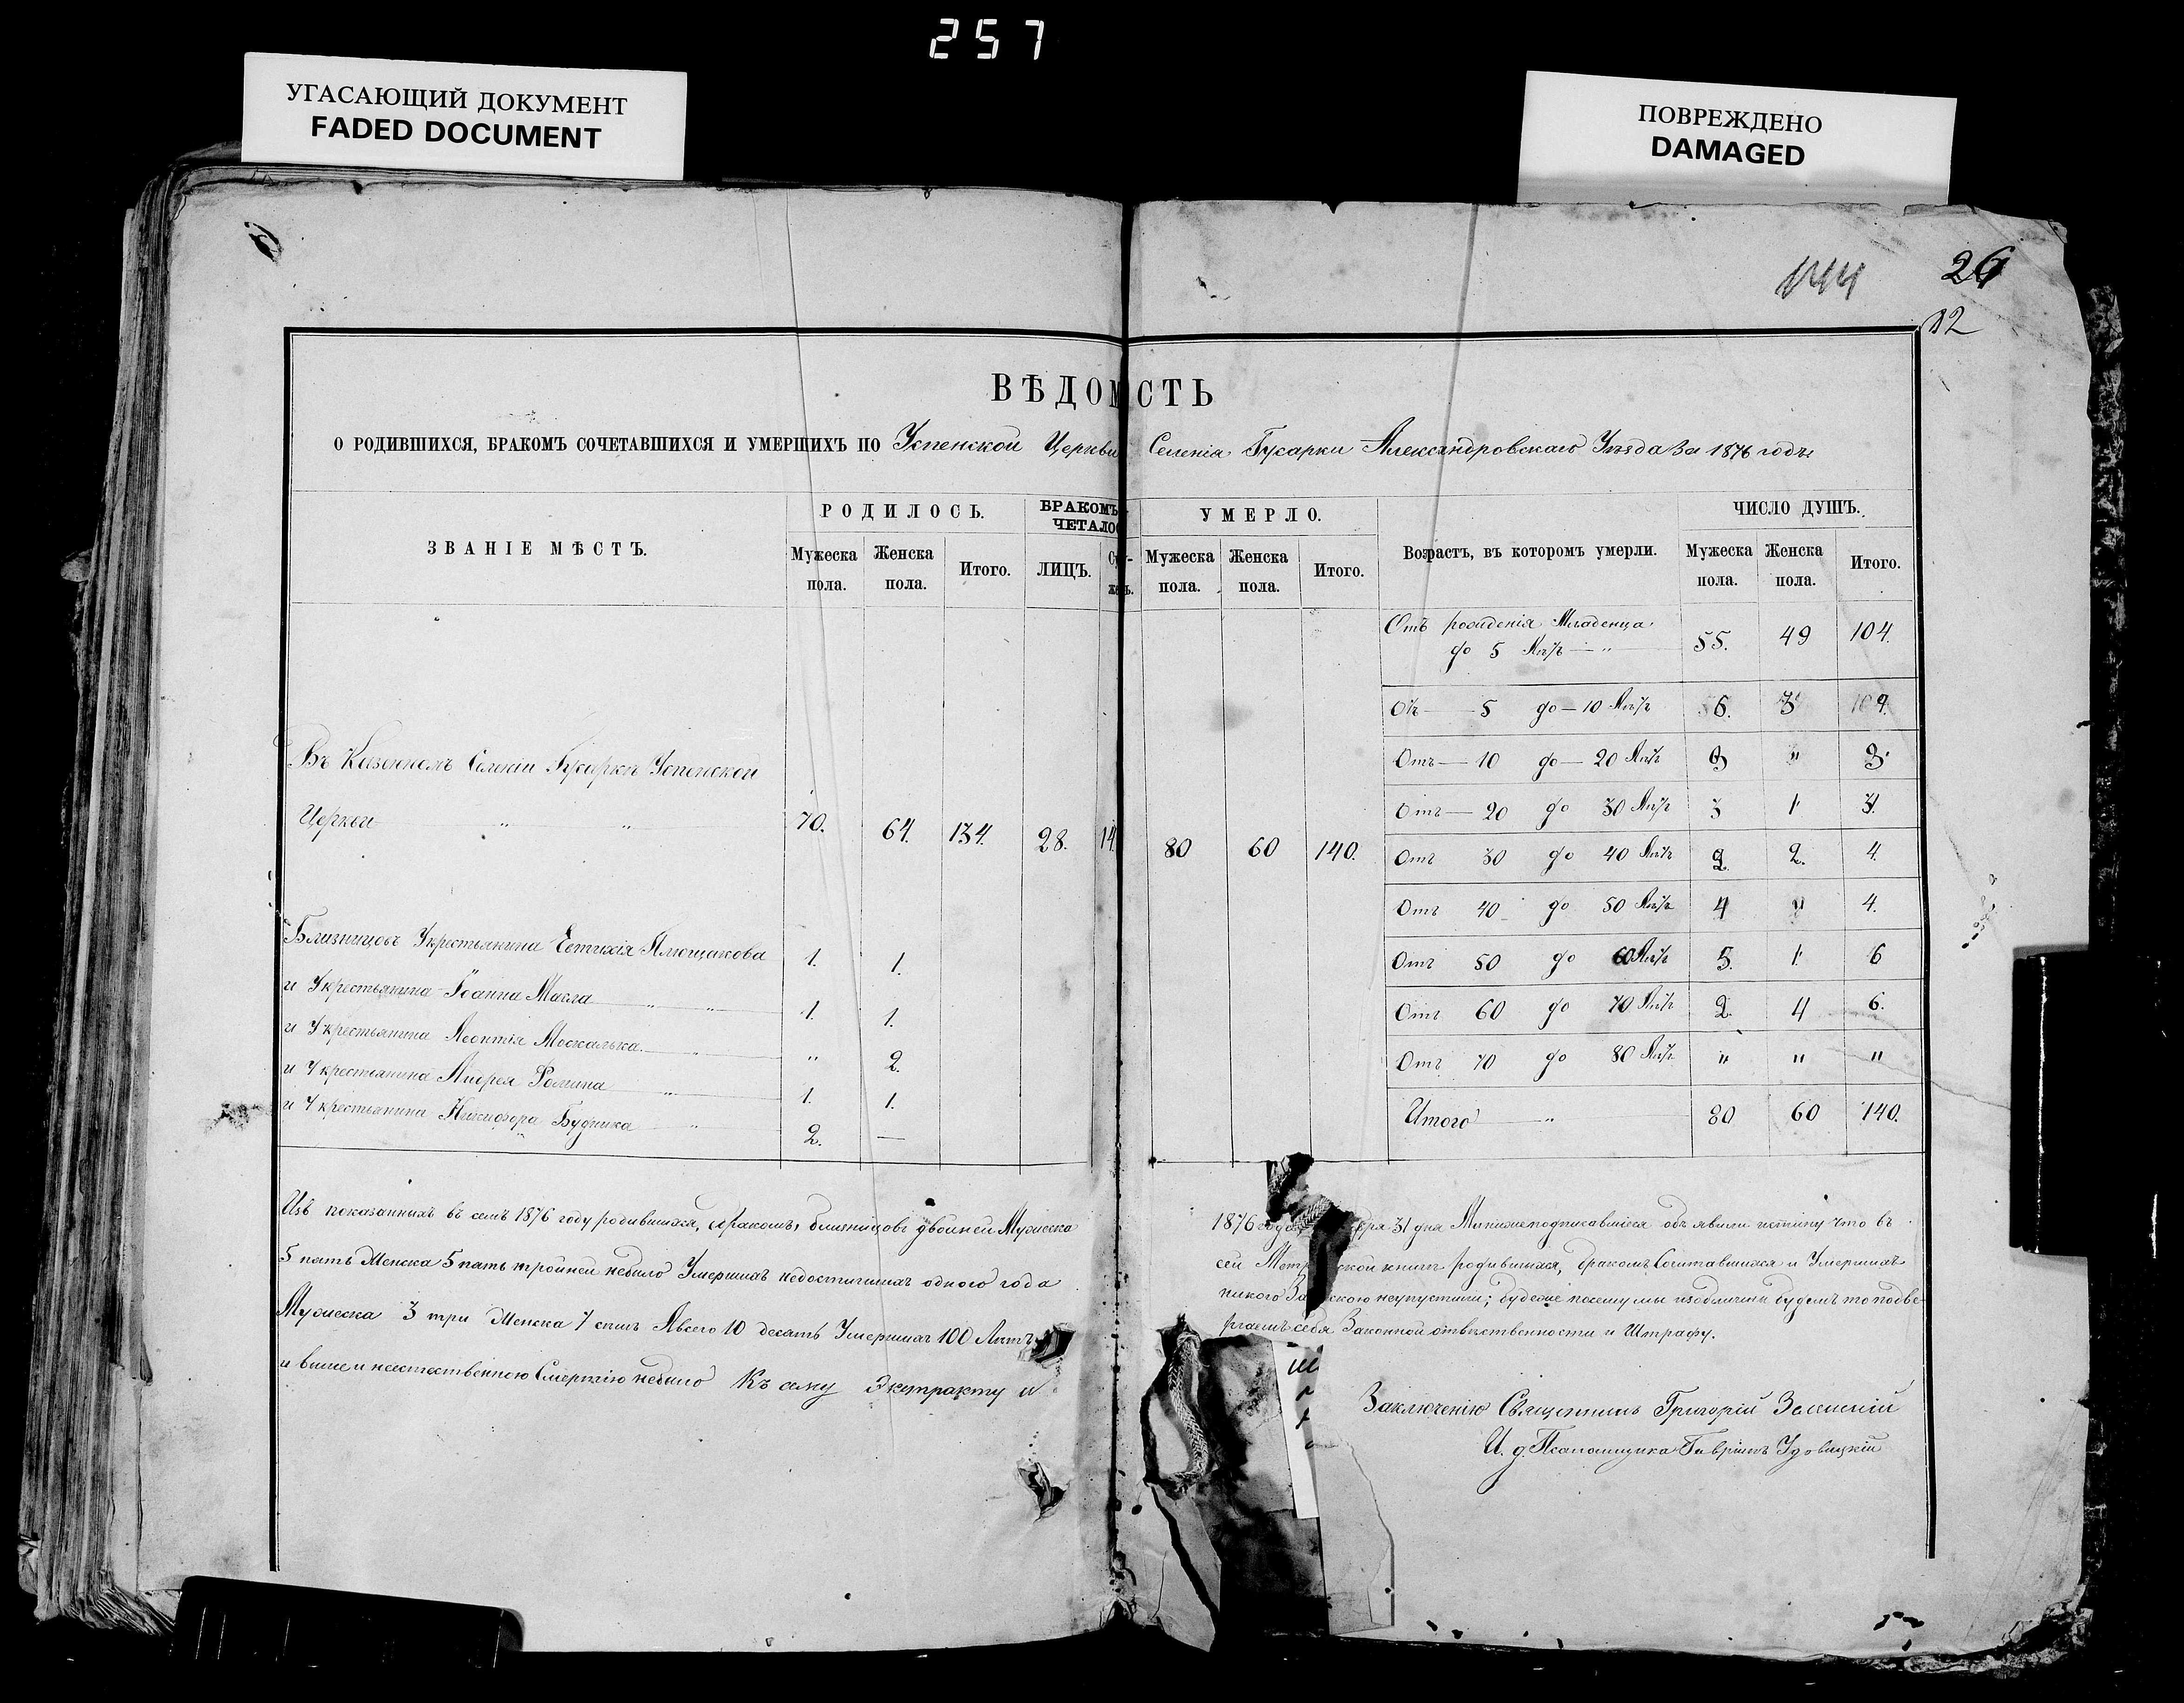 257
УГАСАЮЩИЙ ДОКУМЕНТ
FADED DOCUMENT
ПОВРЕЖДЕНО
DAMAGED
144
26
12
ВѢДОМСТЬ
О РОДИВШИХСЯ, БРАКОМЪ СОЧЕТАВШИХСЯ И УМЕРШИХЪ ПО Успенской Церкви Селенія Гусарки Александровскаго Уѣзда За 1876 годъ
ЗВАНІЕ МѢСТЪ.
РОДИЛОСЬ.
Мужеска пола.
Женска пола.
Итого.
БРАКОМЪ
ЧЕТАЛО
ЛИЦЪ.
УМЕРЛО.
Мужеска пола.
Женска пола.
Итого.
Возрастъ, въ которомъ умерли.
ЧИСЛО ДУШЪ.
Мужеска пола.
Женска пола.
Итого.
Въ Казенномъ Селеніи Гусаркѣ Успенской
Церкви " " 70. 64. 134. 28. 14. 80 60 140.
Близнецовъ У крестьянина Евтихія Плющакова 1. 1.
и У крестьянина Іоанна Масла " " 1. 1.
и У крестьянина Леонтія Москалька " " 2.
и У крестьянина Андрея Фомина " 1. 1.
и У крестьянина Никифора Будника " 2. —
Отъ рожденія Младенца
до 5 Лѣтъ — " 55. 49 104.
Отъ — 5 до — 10 Лѣтъ 6. 3 9.
Отъ — 10 до — 20 Лѣтъ "
Отъ — 20 до 30 Лѣтъ 3 1
Отъ 30 до 40 Лѣтъ 2. 2. 4.
Отъ 40 до 50 Лѣтъ 4 " 4.
Отъ 50 до 60 Лѣтъ 5. 1. 6
Отъ 60 до 70 Лѣтъ 2. 4 6.
Отъ 70 до 80 Лѣтъ " " "
Итого " 80 60 140.
Изъ показанныхъ въ семъ 1876 году родившихся, бракомъ, близнецовъ двойней Мужеска
5 пять Женска 5 пять тройней небыло Умершихъ недостигшихъ одного года
Мужеска 3 три Женска 7 семь Всего 10 десять Умершихъ 100 Лѣтъ
и выше и неестественною Смертію небыло Къ сему Экстракту и
1876 года 31 дня Мы нижеподписавшіеся объявили истину что въ
сей книгѣ родившихся, бракомъ Сочетавшихся и Умершихъ
никого неупустили; будеже посему мы изобличены будемъ то подве
ргаемъ себя Законной отвѣтственности и Штрафу.
Заключенію Священникъ Григорій Зеленскій
И. д. Псаломщика Гавріилъ Удовицкій